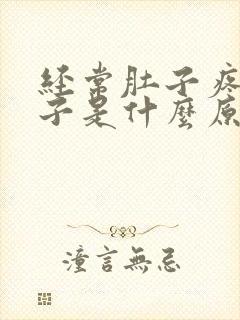 经常肚子疼
子是什麼原
潼言無忌